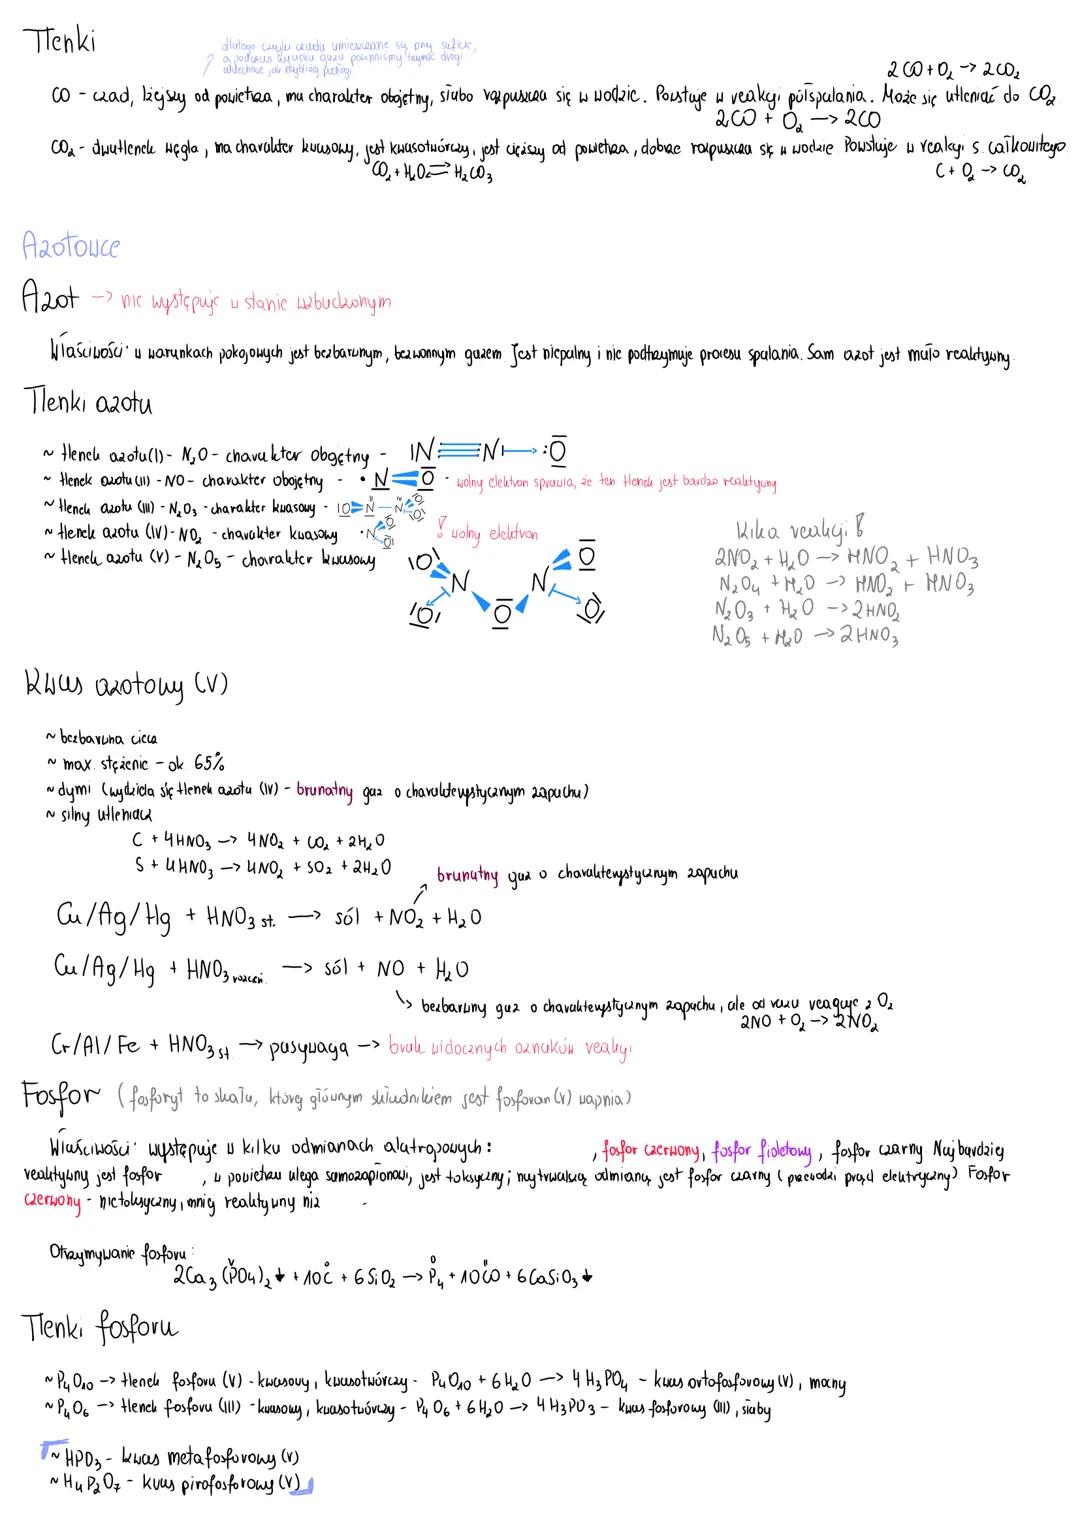 Tlenki
dlatego czujki czadu umieszczane są przy suficie,
a podczas wycieku gazu powinniśmy trzymać drogi
oddechowe jak najbliżej podłogi
2CO + O₂ -> 2CO₂
CO - czad, lżejszy od powietrza, ma charakter obojętny, słabo rozpuszcza się w wodzie. Powstaje w reakcji półspalania. Może się utleniać do CO₂
2CO + O₂ -> 2CO
CO₂ - dwutlenek węgla, ma charakter kwasowy, jest kwasotwórczy, jest cięższy od powietrza, dobrze rozpuszcza się w wodzie. Powstaje w reakcji s. całkowitego
CO₂ + H₂O ⇌ H₂CO₃
C + O₂ -> CO₂
Azotowce
Azot -> nie występuje w stanie wzbudzonym
Właściwości: w warunkach pokojowych jest bezbarwnym, bezwonnym gazem. Jest niepalny i nie podtrzymuje procesu spalania. Sam azot jest mało reaktywny.
Tlenki azotu
~ tlenek azotu (I) - N₂O - charakter obojętny - |N≡N->:O
~ tlenek azotu (II) - NO - charakter obojętny - • N O - wolny elektron sprawia, że ten tlenek jest bardzo reaktywny
~ tlenek azotu (III) - N₂O₃ - charakter kwasowy - |O N - N O O
~ tlenek azotu (IV) - NO₂ - charakter kwasowy • N O O ! wolny elektron
~ tlenek azotu (V) - N₂O₅ - charakter kwasowy
|O N O N O
|O| O
Kilka reakcji !
2NO₂ + H₂O -> HNO₂ + HNO₃
N₂O₄ + H₂O -> HNO₂ + HNO₃
N₂O₃ + H₂O -> 2HNO₂
N₂O₅ + H₂O -> 2HNO₃
Kwas azotowy (V)
~ bezbarwna ciecz
~ max. stężenie - ok. 65%
~ dymi (wydziela się tlenek azotu (IV) - brunatny gaz o charakterystycznym zapachu)
~ silny utleniacz
C + 4HNO₃ -> 4NO₂ + CO₂ + 2H₂O
S + 4HNO₃ -> 4NO₂ + SO₂ + 2H₂O
brunatny gaz o charakterystycznym zapachu
Cu/Ag/Hg + HNO₃ st. -> sól + NO₂ + H₂O
Cu/Ag/Hg + HNO₃ rozcień. -> sól + NO + H₂O
bezbarwny gaz o charakterystycznym zapachu, ale od razu reaguje z O₂
2NO + O₂ -> 2NO₂
Cr/Al/Fe + HNO₃ st -> pasywacja -> brak widocznych oznaków reakcji
Fosfor (fosforyt to skała, której głównym składnikiem jest fosforan (V) wapnia)
Właściwości: występuje w kilku odmianach alatropowych: , fosfor czerwony, fosfor fioletowy, fosfor czarny. Najbardziej
reaktywny jest fosfor , w powietrzu ulega samozapłonowi, jest toksyczny; najtrwalszą odmianą jest fosfor czarny (przewodzi prąd elektryczny). Fosfor
czerwony - nietoksyczny, mniej reaktywny niż .
Otrzymywanie fosforu:
2Ca₃(PO₄)₂↓ + 10C + 6SiO₂ -> P₄ + 10CO + 6CaSiO₃↓
V 0 0 II
Tlenki fosforu
~ P₄O₁₀ -> tlenek fosforu (V) - kwasowy, kwasotwórczy - P₄O₁₀ + 6H₂O -> 4H₃PO₄ - kwas ortofosforowy (V), mocny
~ P₄O₆ -> tlenek fosforu (III) - kwasowy, kwasotwórczy - P₄O₆ + 6H₂O -> 4H₃PO₃ - kwas fosforowy (III), słaby
~ HPO₃ - kwas metafosforowy (V)
~ H₄P₂O₇ - kwas pirofosforowy (V)